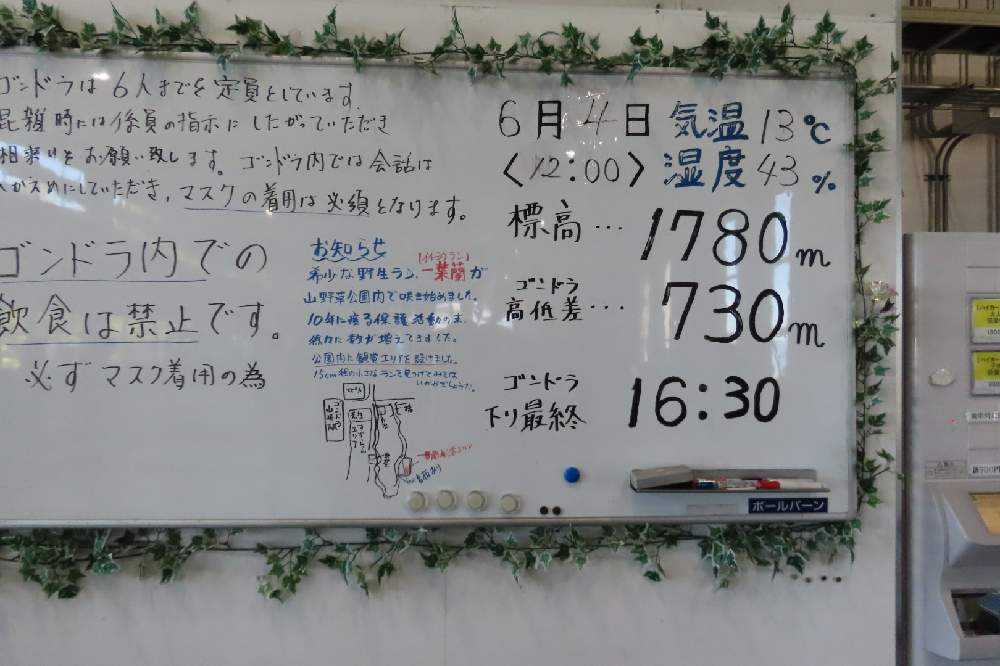 ゴンドラは6人までを定員としています。
混雑時には係員の指示にしたがっていただき
相乗りをお願い致します。ゴンドラ内では会話は
ひかえめにしていただき、マスクの着用は必須となります。
ゴンドラ内での
飲食は禁止です。
必ずマスク着用の為
お知らせ
希少な野生ラン、一葉蘭が
[イチヨウラン]
山野草公園内で咲き始めました。
10年に渡る保護活動の末
徐々に数が増えてきました。
公園内に観賞エリアを設けました。
15cm程の小さなランを見つけてみては
いかがでしょうか。
6月4日
<12:00>
気温 13℃
湿度 43%
標高… 1780m
ゴンドラ
高低差… 730m
ゴンドラ
下り最終 16:30
ボールパーン